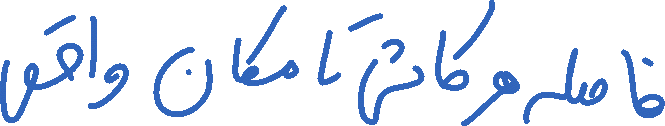 فاصله هر کاشی تا مکان واقعی